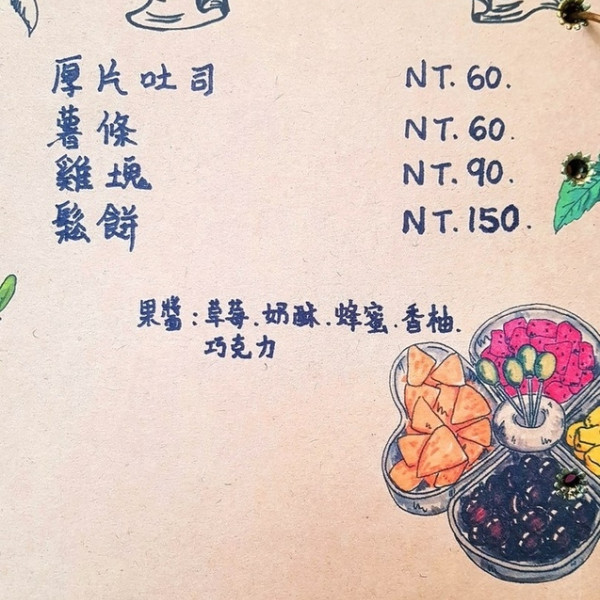 厚片吐司 NT. 60.
薯條 NT. 60.
雞塊 NT. 90.
鬆餅 NT. 150.
果醬:草莓.奶酥.蜂蜜.香柚.
巧克力